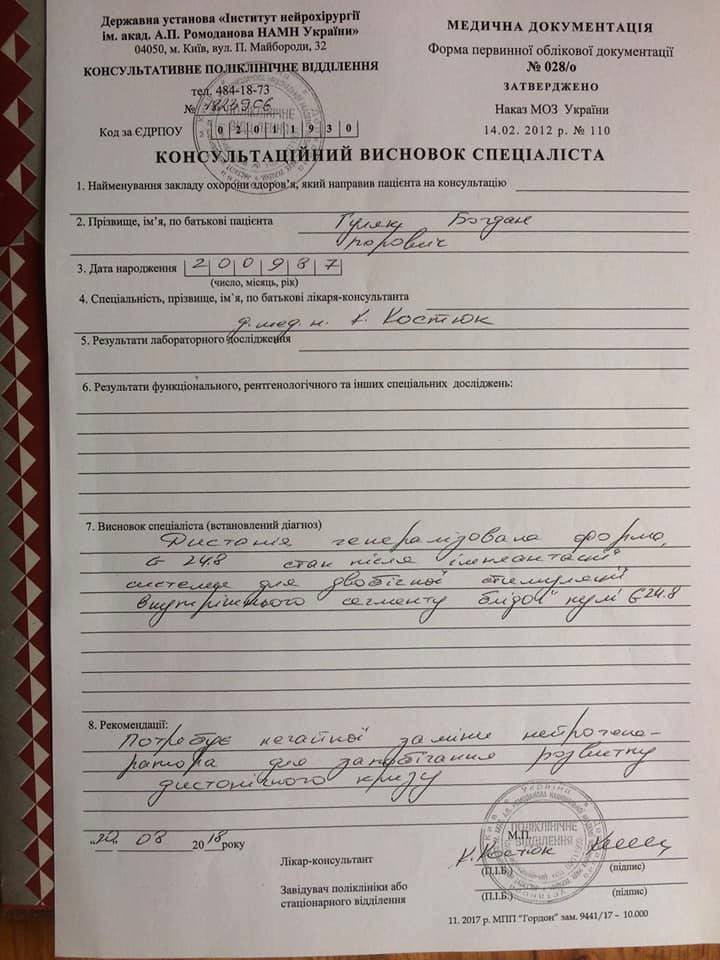 Державна установа «Інститут нейрохірургії
ім. акад. А.П. Ромоданова НАМН України»
04050, м. Київ, вул. П. Майбороди, 32
КОНСУЛЬТАТИВНЕ ПОЛІКЛІНІЧНЕ ВІДДІЛЕННЯ
тел. 484-18-73
№
Код за ЄДРПОУ 02011930
МЕДИЧНА ДОКУМЕНТАЦІЯ
Форма первинної облікової документації
№ 028/о
ЗАТВЕРДЖЕНО
Наказ МОЗ України
14.02. 2012 р. № 110
КОНСУЛЬТАЦІЙНИЙ ВИСНОВОК СПЕЦІАЛІСТА
1. Найменування закладу охорони здоров'я, який направив пацієнта на консультацію
2. Прізвище, ім'я, по батькові пацієнта Богдан
3. Дата народження 200987
(число, місяць, рік)
4. Спеціальність, прізвище, ім`я, по батькові лікаря-консультанта
д.мед.н. К. Костюк
5. Результати лабораторного дослідження
6. Результати функціонального, рентгенологічного та інших спеціальних досліджень:
7. Висновок спеціаліста (встановлений діагноз)
Дистонія генералізована форма,
G 24.8 стан після імплантації
системи для двобічної стимуляції
внутрішнього сегменту блідої кулі G24.8
8. Рекомендації:
Потребує негайної заміни нейрогене-
ратора для запобігання розвитку
дистонічного кризу
„20„ 08 2018 року
М.П.
Лікар-консультант К. Костюк
(П.І.Б.) (підпис)
Завідувач поліклініки або
стаціонарного відділення
(П.І.Б.) (підпис)
11. 2017 р. МПП "Гордон" зам. 9441/17 – 10.000